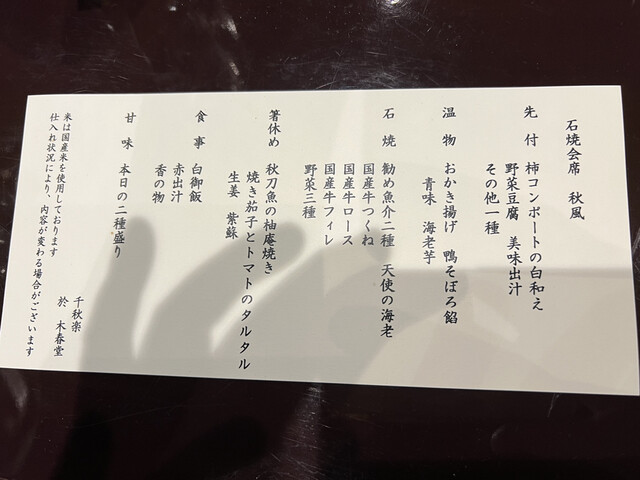 石焼会席　秋風
先付　柿コンポートの白和え
野菜豆腐　美味出汁
その他一種
温物　おかき揚げ　鴨そぼろ餡
青味　海老芋
石焼　勧め魚介二種　天使の海老
国産牛つくね
国産牛ロース
国産牛フィレ
野菜三種
箸休め　秋刀魚の柚庵焼き
焼き茄子とトマトのタルタル
生姜　紫蘇
食事　白御飯
赤出汁
香の物
甘味　本日の二種盛り
米は国産米を使用しております
仕入れ状況により、内容が変わる場合がございます
千秋楽
於　木春堂